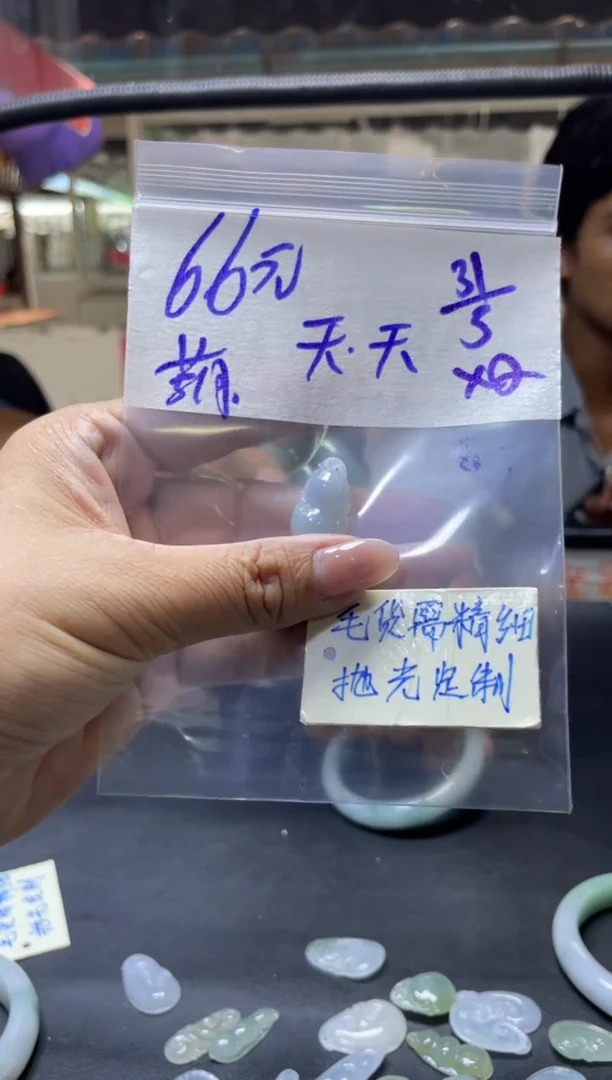 66元
天.天
31/5
毛货需精细
抛光定制